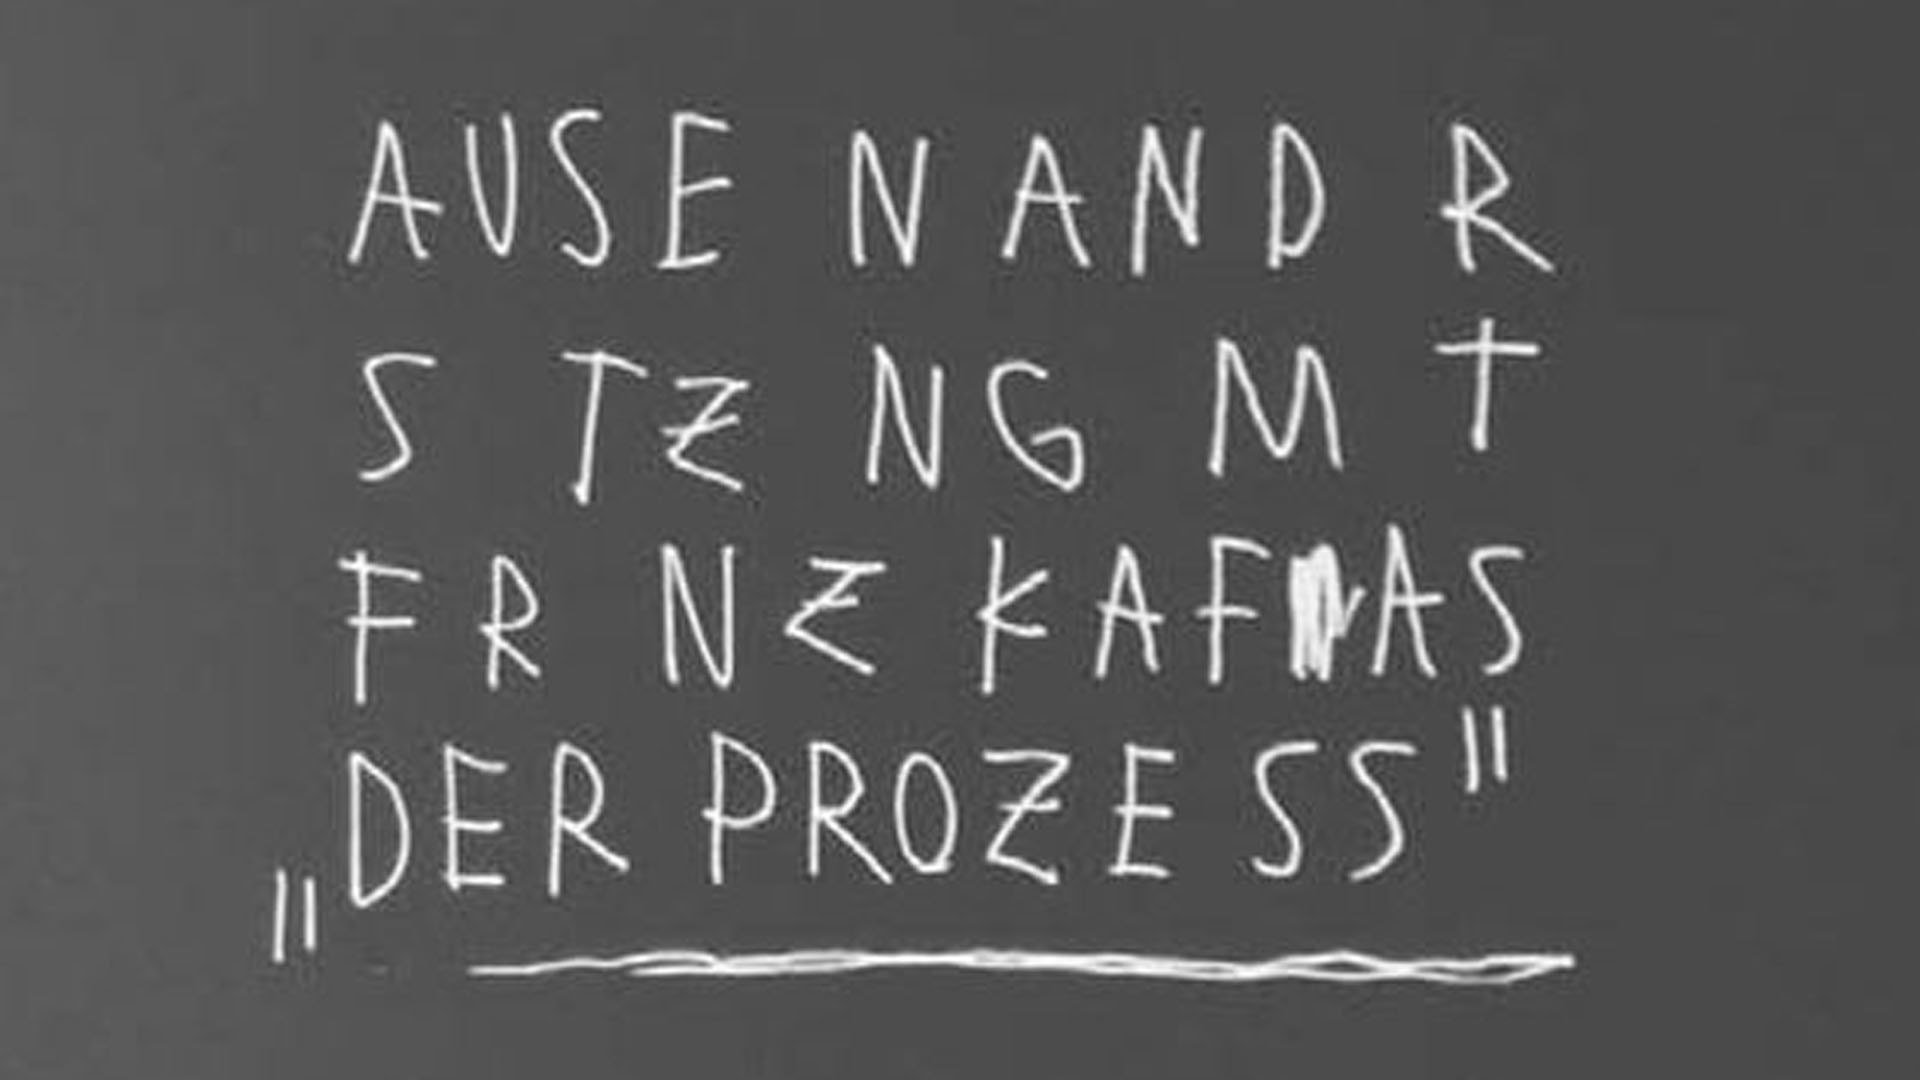 AUSE NAND R
S TZ NG M T
FR NZ KAF AS
„DER PROZESS"